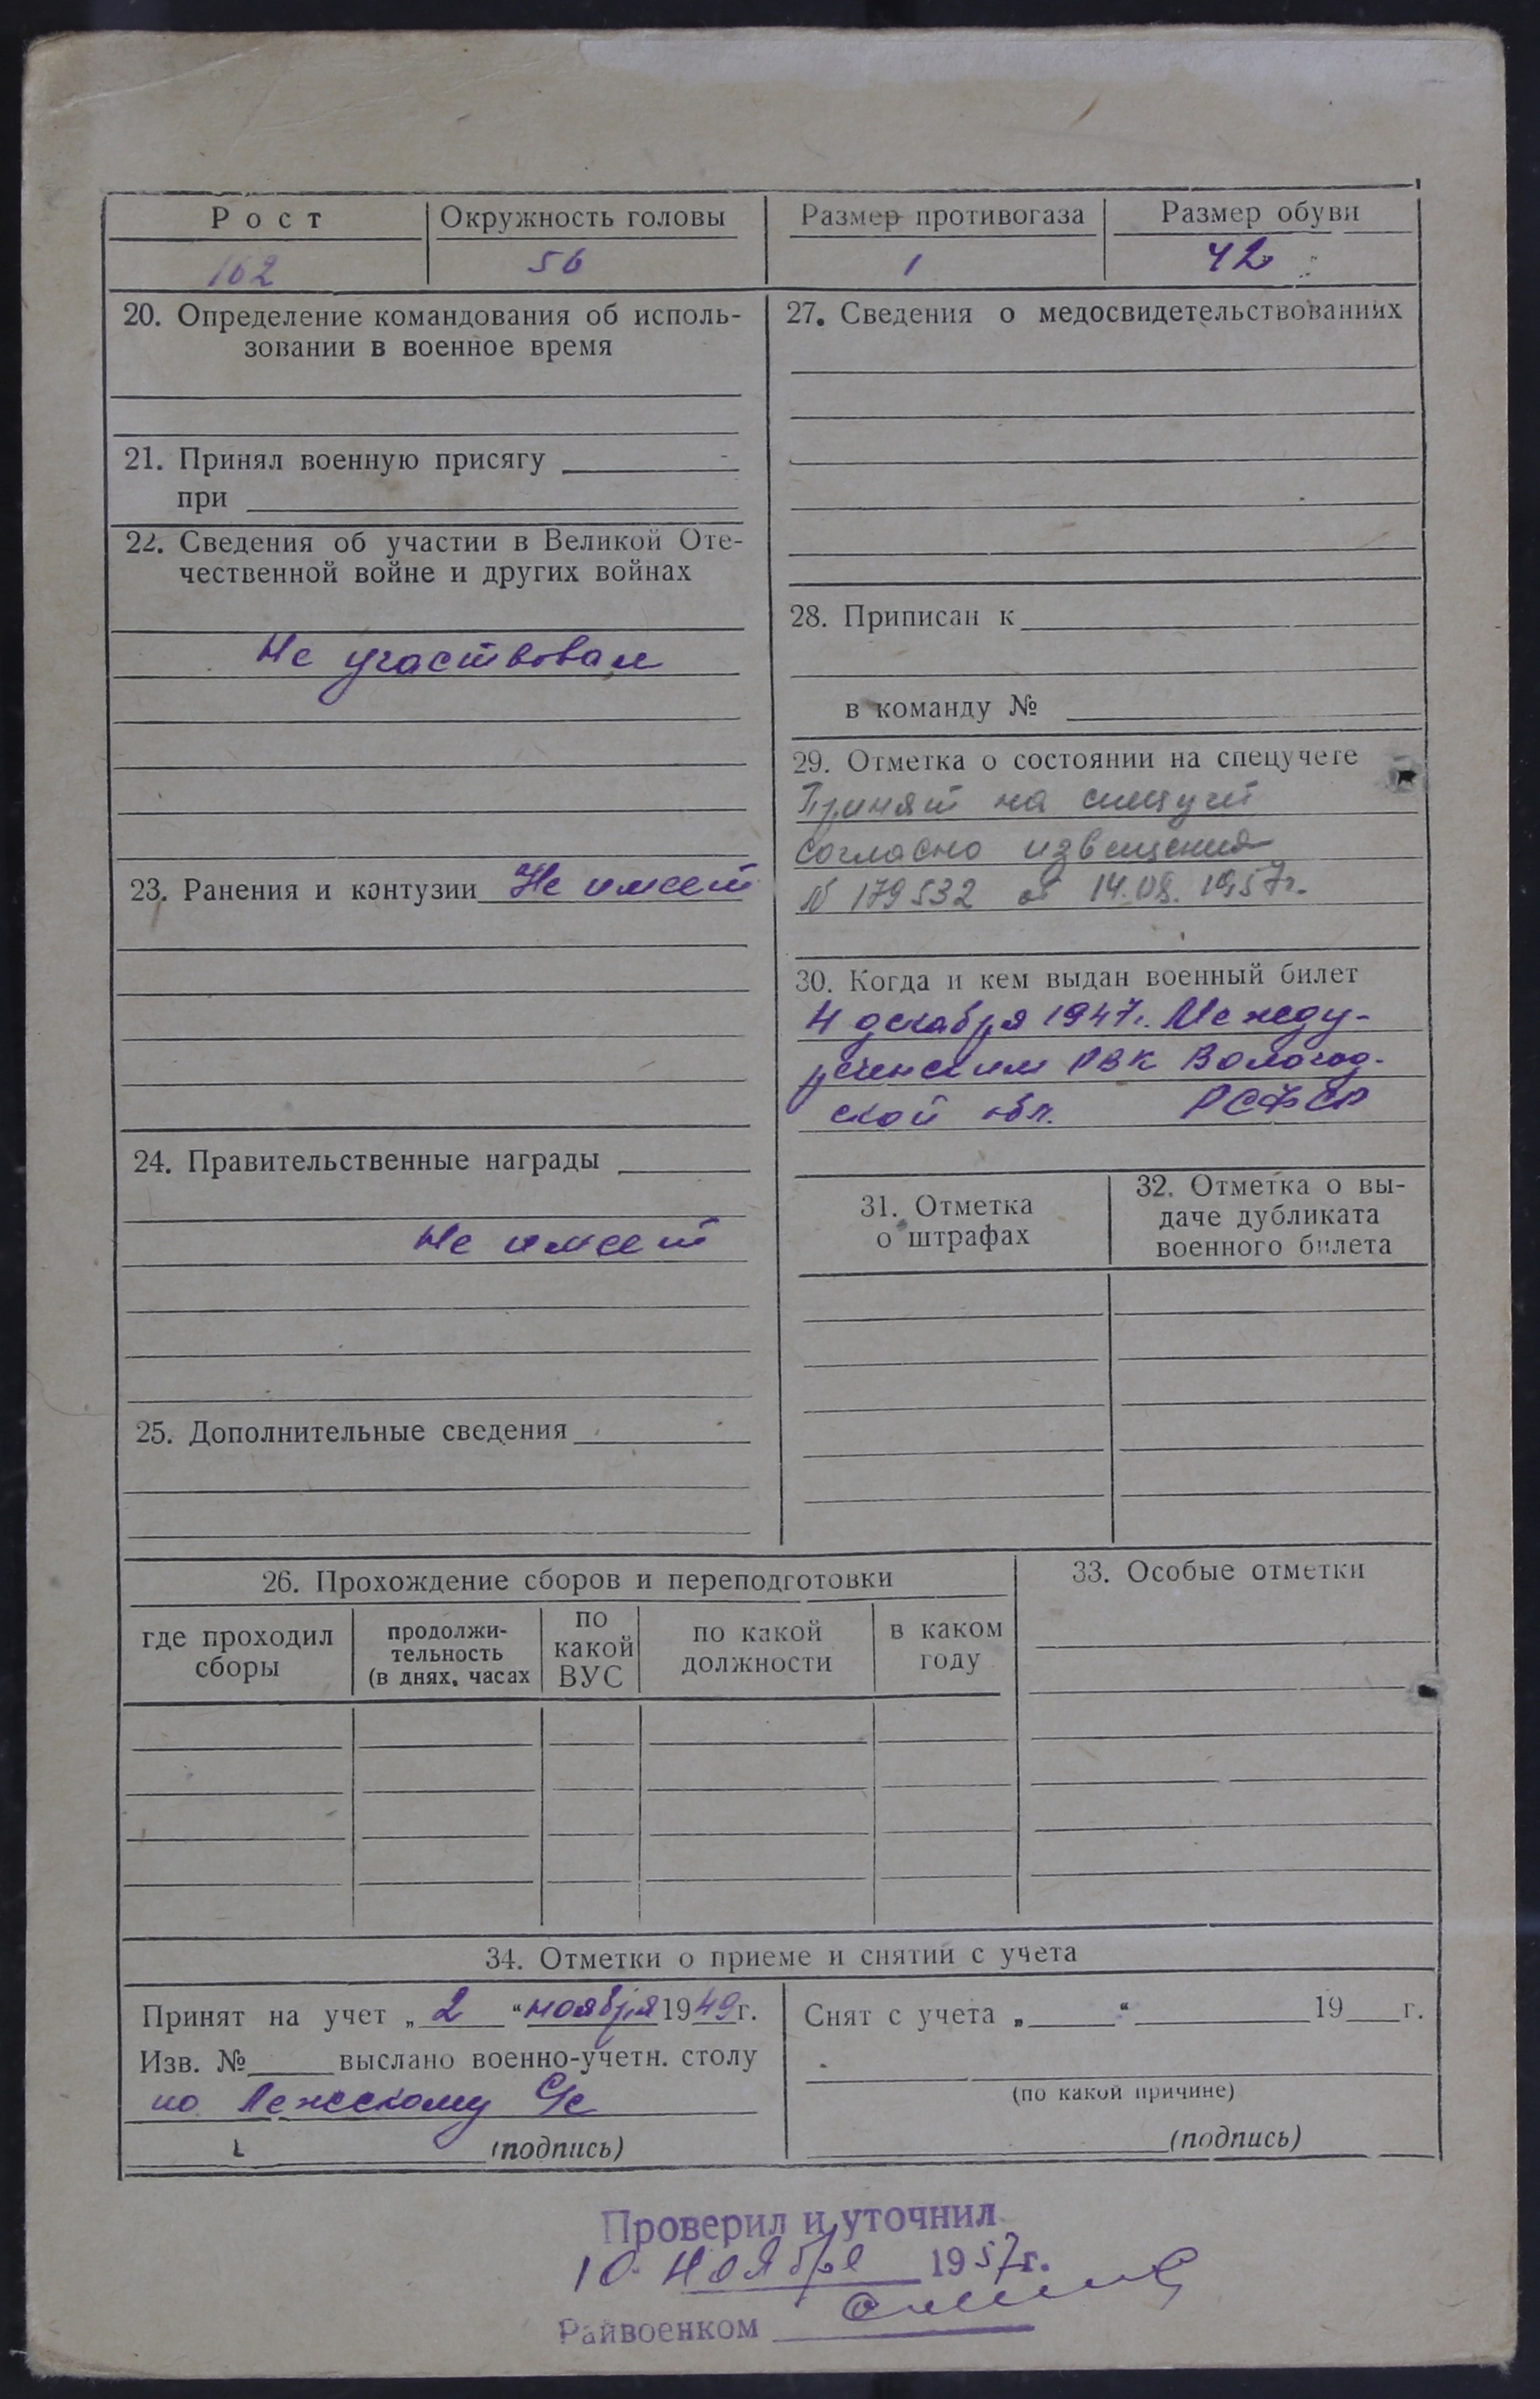 Рост Окружность головы Размер противогаза Размер обуви
162 56 1 42
20. Определение командования об исполь-
зовании в военное время
21. Принял военную присягу
при
22. Сведения об участии в Великой Оте-
чественной войне и других войнах
Не участвовал
23. Ранения и контузии Не имеет
24. Правительственные награды
Не имеет
25. Дополнительные сведения
27. Сведения о медосвидетельствованиях
28. Приписан к
в команду №
29. Отметка о состоянии на спецучете
Принят на спецучет
согласно извещения
№ 179532 от 14.08.1957г.
30. Когда и кем выдан военный билет
4 декабря 1947г. Между-
реченским РВК Вологод-
ской обл. РСФСР
31. Отметка
о штрафах
32. Отметка о вы-
даче дубликата
военного билета
26. Прохождение сборов и переподготовки
где проходил
сборы
продолжи-
тельность
(в днях, часах
по
какой
ВУС
по какой
должности
в каком
году
33. Особые отметки
34. Отметки о приеме и снятии с учета
Принят на учет „2“ ноября 1949г.
Изв. № выслано военно-учетн. столу
по Лежскому С/с
(подпись)
Снят с учета „ “ 19 г.
(по какой причине)
(подпись)
Проверил и уточнил
10 ноября 1957г.
Райвоенком